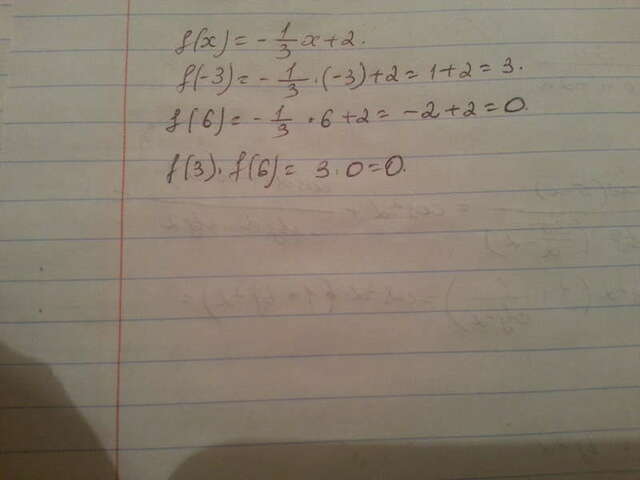 f(x) = -1/3 x + 2.
f(-3) = -1/3 · (-3) + 2 = 1 + 2 = 3.
f(6) = -1/3 · 6 + 2 = -2 + 2 = 0.
f(3) · f(6) = 3 · 0 = 0.